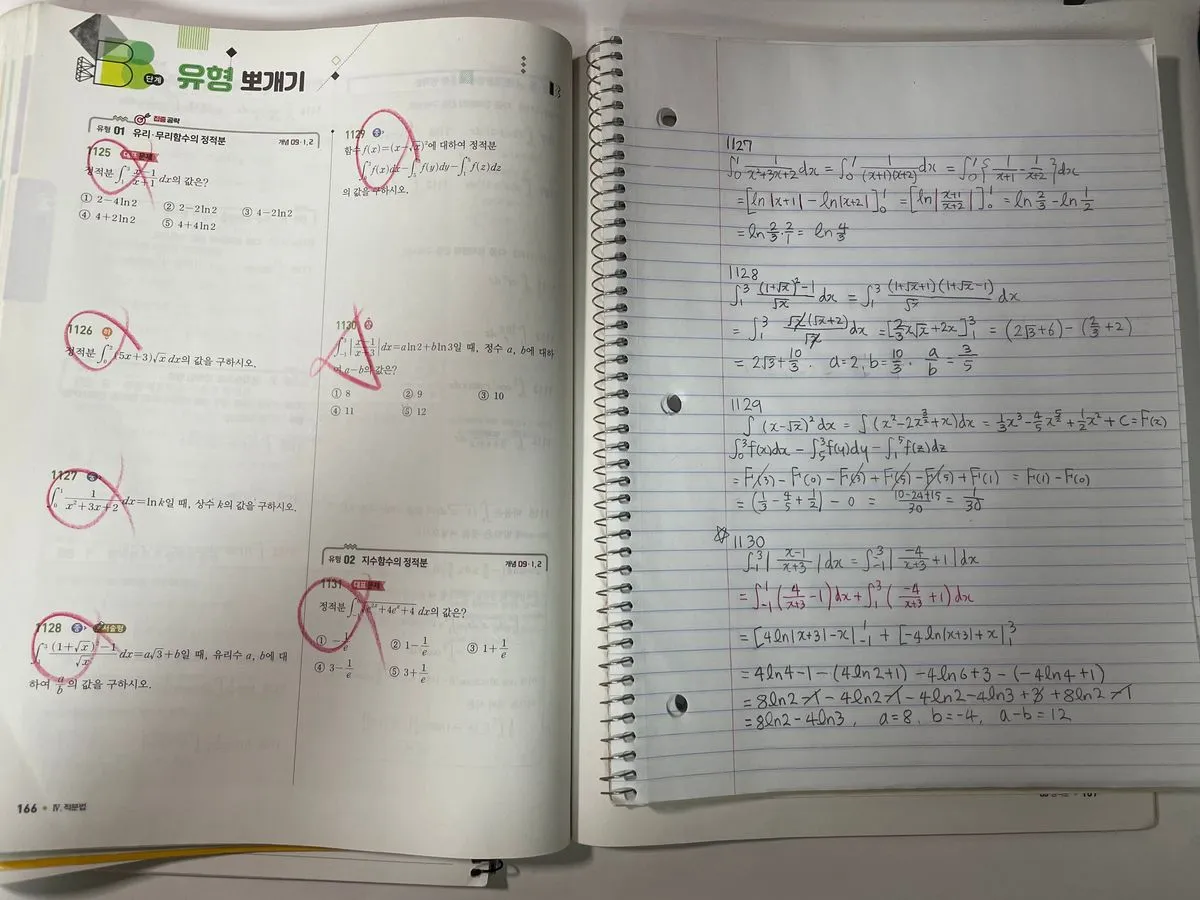 B 단계 유형 뽀개기
집중 공략
유형 01 유리·무리함수의 정적분 개념 09-1, 2
1125 대표 문제
정적분 ∫₁³ (x-1)/(x+1) dx의 값은?
① 2-4ln2 ② 2-2ln2 ③ 4-2ln2
④ 4+2ln2 ⑤ 4+4ln2
1126 하
(5x+3)√x dx의 값을 구하시오.
1127 중
∫₀¹ 1/(x²+3x+2) dx=ln k일 때, 상수 k의 값을 구하시오.
1128 중 서술형
∫₁³ ((1+√x)²-1)/√x dx=a√3+b일 때, 유리수 a, b에 대
하여 a/b의 값을 구하시오.
166 IV. 적분법
1129 중
함수 f(x)=(x-√x)²에 대하여 정적분
∫₀³ f(x)dx-∫₅³ f(y)dy-∫₁⁵ f(z)dz
의 값을 구하시오.
1130 상
∫₋₁³ |(x-1)/(x+3)| dx=a ln2+b ln3일 때, 정수 a, b에 대하
여 a-b의 값은?
① 8 ② 9 ③ 10
④ 11 ⑤ 12
유형 02 지수함수의 정적분 개념 09-1, 2
1131 대표 문제
정적분 √(e²ˣ+4eˣ+4) dx의 값은?
① -1/e ② 1-1/e ③ 1+1/e
④ 3-1/e ⑤ 3+1/e
1127
∫₀¹ 1/(x²+3x+2) dx = ∫₀¹ 1/((x+1)(x+2)) dx = ∫₀¹ { 1/(x+1) - 1/(x+2) } dx
= [ln|x+1| - ln|x+2|]₀¹ = [ln|(x+1)/(x+2)|]₀¹ = ln 2/3 - ln 1/2
= ln 2/3 · 2/1 = ln 4/3
1128
∫₁³ ((1+√x)²-1)/√x dx = ∫₁³ ((1+√x+1)(1+√x-1))/√x dx
= ∫₁³ (√x(√x+2))/√x dx = [2/3 x√x + 2x]₁³ = (2√3+6) - (2/3+2)
= 2√3 + 10/3. a=2, b=10/3. a/b = 3/5
1129
∫ (x-√x)² dx = ∫ (x²-2x^(3/2)+x)dx = 1/3 x³ - 4/5 x^(5/2) + 1/2 x² + C = F(x)
∫₀³ f(x)dx - ∫₅³ f(y)dy - ∫₁⁵ f(z)dz
= F(3) - F(0) - F(3) + F(5) - F(5) + F(1) = F(1) - F(0)
= (1/3 - 4/5 + 1/2) - 0 = (10-24+15)/30 = 1/30
☆ 1130
∫₋₁³ |(x-1)/(x+3)| dx = ∫₋₁³ |-4/(x+3) + 1| dx
= ∫₋₁¹ (4/(x+3) - 1) dx + ∫₁³ (-4/(x+3) + 1) dx
= [4ln|x+3| - x]₋₁¹ + [-4ln(x+3) + x]₁³
= 4ln4 - 1 - (4ln2+1) - 4ln6 + 3 - (-4ln4+1)
= 8ln2 - 1 - 4ln2 - 1 - 4ln2 - 4ln3 + 3 + 8ln2 - 1
= 8ln2 - 4ln3, a=8, b=-4, a-b=12